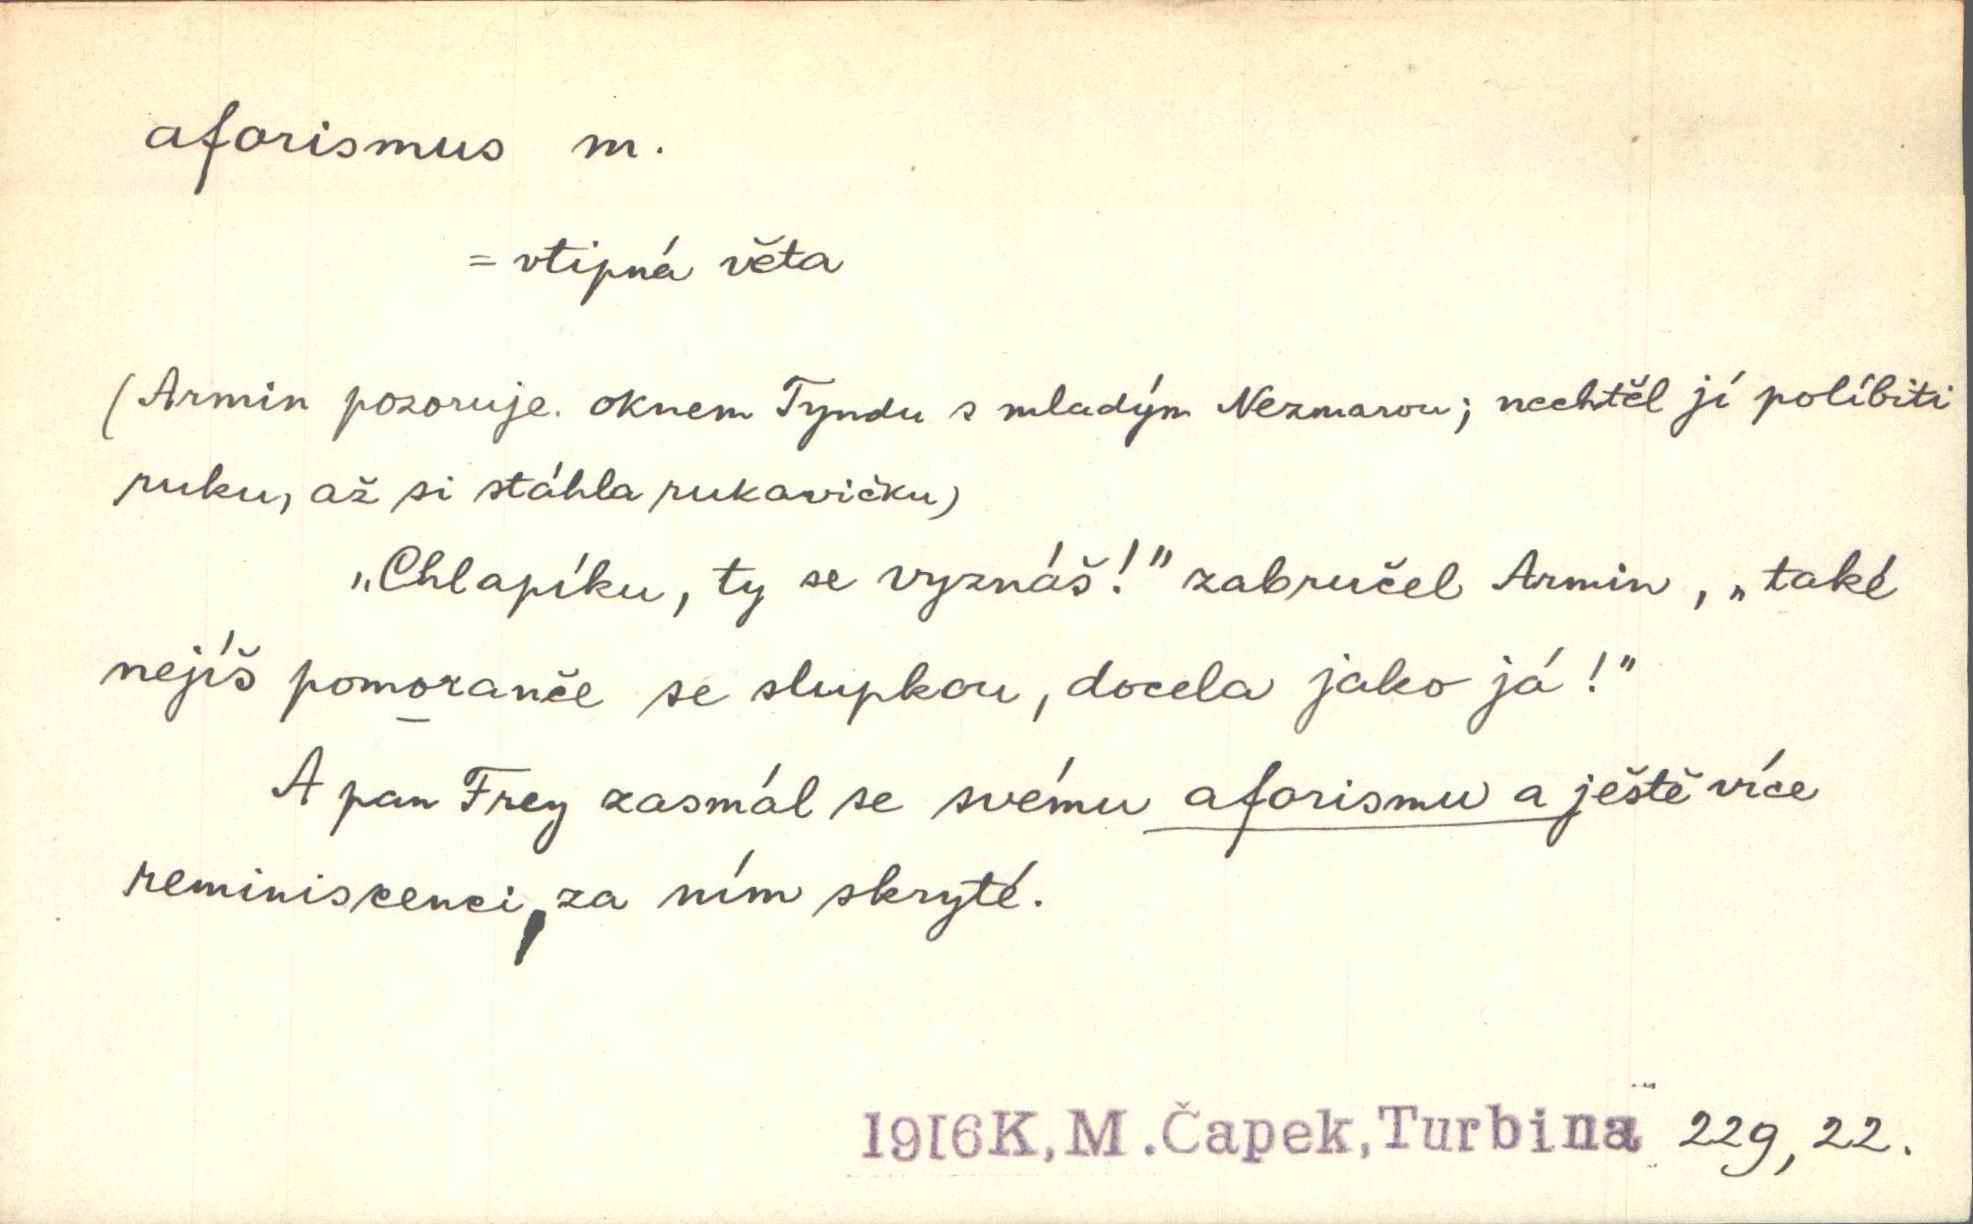 aforismus m.
= vtipná věta
(Armin pozoruje oknem Tyndu s mladým Nezmarou; nechtěl jí políbiti
ruku, až si stáhla rukavičku)
„Chlapíku, ty se vyznáš!" zabručel Armin, „také
nejíš pomoranče se slupkou, docela jako já!"
A pan Frey zasmál se svému aforismu a ještě více
reminiscenci, za ním skryté.
1916K,M.Čapek,Turbina 229,22.